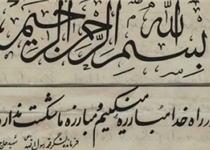 بسم الله الرحمن الرحیم
در راه خدا مبارزه میکنیم و مبارزه ما شکست ندارد